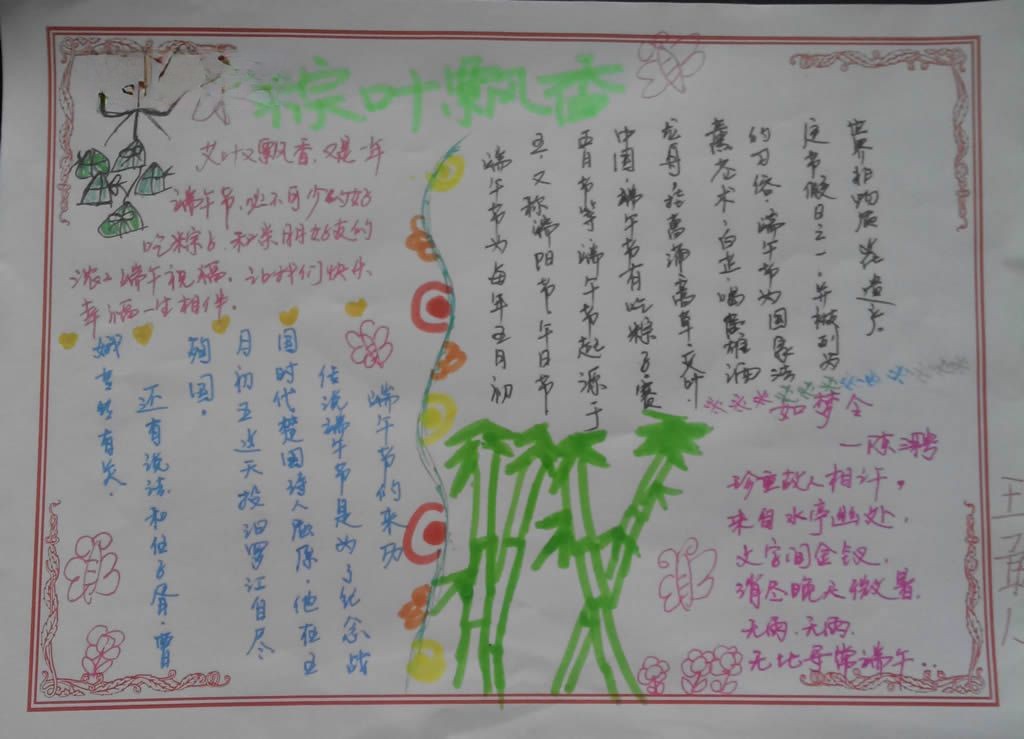 粽叶飘香
艾叶又飘香,又是一年
端午节,必不可少的好
吃粽子,和亲朋好友的
浓浓端午祝福,让我们快乐
幸福一生相伴。
端午节的来历
传说端午节是为了纪念战
国时代楚国诗人屈原,他在五
月初五这天投汨罗江自尽
殉国。
还有说法和伍子胥,曹
娥有关。
端午节为每年五月初
五,又称端阳节、午日节、
五月节等,端午节起源于
中国,端午节有吃粽子,赛
龙舟,挂菖蒲,蒿草,艾叶,
薰苍术,白芷,喝酒
的习俗,端午节为国家法
定节假日之一,并被列为
世界非物质遗产。
如梦令
—陈聘
珍重故人相许。
来自水亭幽处,
文字间金钗,
消尽晚天微暑。
无雨,无雨,
无比寻常端午..